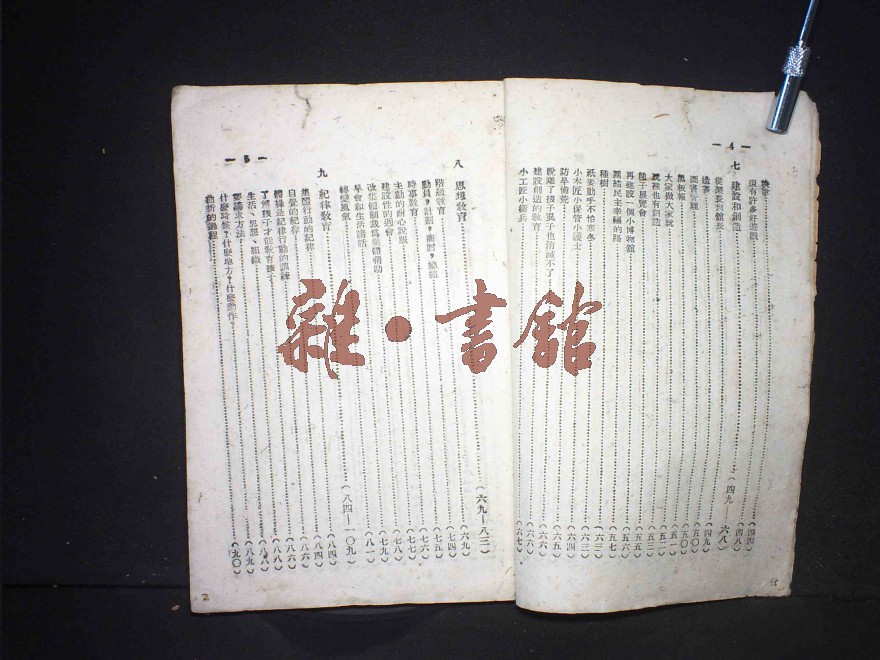 — 4 —
還有許多好遊戲 (四八)
七 建設和創造 (四九—六八)
從榮長到館長 (四九)
造書 (四九)
圖書管理 (五〇)
黑板報 (五〇)
大家做大家玩 (五一)
玩裡也有創造 (五二)
種子展覽會
再建設一個小博物館 (五六)
團結民主幸福的路 (五七)
種樹 (六三)
祇要動手不怕寒冬 (六三)
小木匠小保管小護士 (六四)
防旱備荒 (六五)
脫離了孩子勁子也消滅不了
建設創造的教育 (六六)
小工匠小衛兵 (六七)
— 5 —
八 思想教育 (六九—八三)
階級教育 (七四)
動員,計劃,商討,總結 (七五)
時事教育 (七六)
主動的耐心說服 (七八)
建設性的週會 (七九)
早會和生活講話
轉變風氣
九 紀律教育 (八四—一〇九)
集體行動的紀律 (八四)
自覺的紀律 (八四)
體操是紀律行動的訓練 (八六)
了解孩子才能教育孩子 (八八)
生活、思想、組織 (八九)
要講求方法
什麼時候?什麼地方?什麼動作? (九〇)
雜·書館